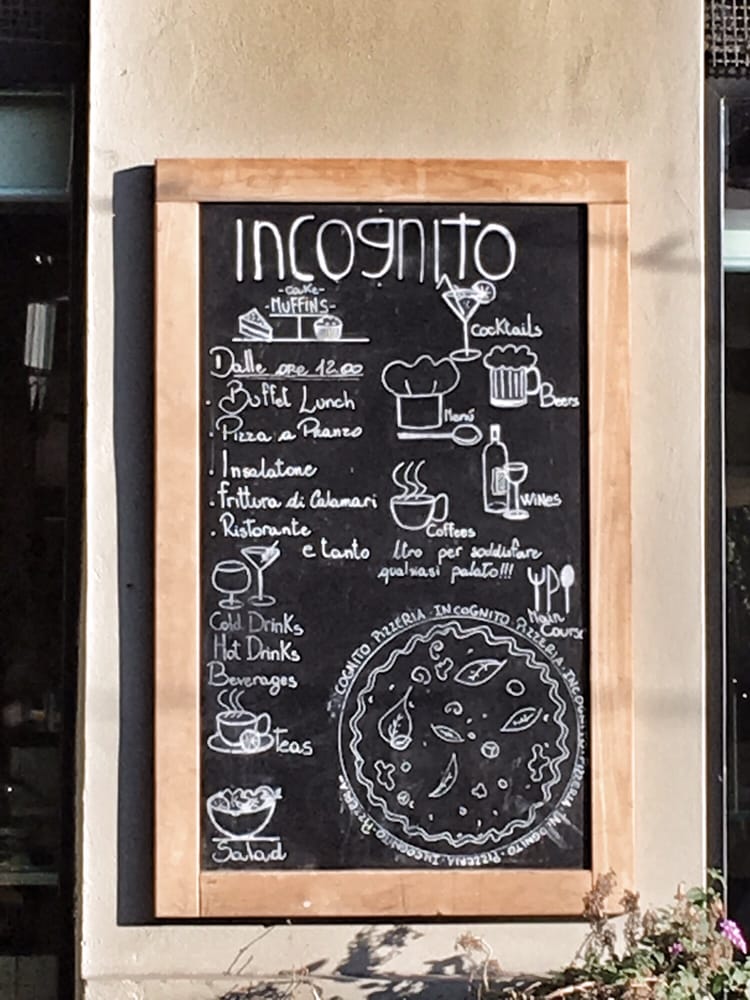 INCOGNITO
-CAKE-
-MUFFINS-
Cocktails
Dalle ore 12.00
Beers
. Buffet Lunch
Menú
. Pizza a Pranzo
. Insalatone
Wines
. Frittura di Calamari
. Ristorante
Coffees
e tanto ltro per soddisfare
qualsiasi palato!!!
Main
Course
Cold Drinks
Hot Drinks
Beverages
Teas
Salad
COGNITO PIZZERIA · INCOGNITO PIZZERIA · INCOGNITO · PIZZERIA INCOGNITO · PIZZERIA · INCOGNITO · PIZZERIA